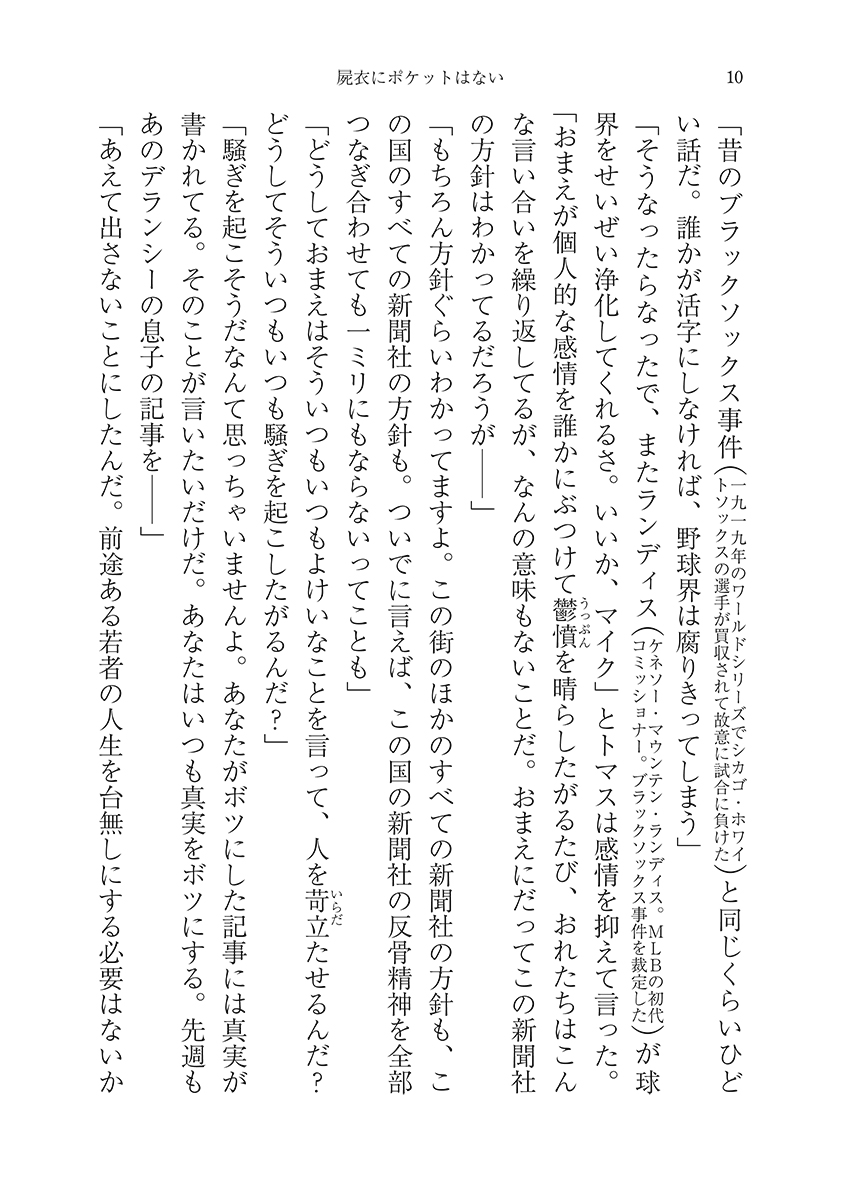 屍衣にポケットはない
10
「昔のブラックソックス事件(一九一九年のワールドシリーズでシカゴ・ホワイトソックスの選手が買収されて故意に試合に負けた)と同じくらいひど
い話だ。誰かが活字にしなければ、野球界は腐りきってしまう」
「そうなったらなったで、またランディス(ケネソー・マウンテン・ランディス。MLBの初代コミッショナー。ブラックソックス事件を裁定した)が球
界をせいぜい浄化してくれるさ。いいか、マイク」とトマスは感情を抑えて言った。
「おまえが個人的な感情を誰かにぶつけて鬱憤うっぷんを晴らしたがるたび、おれたちはこん
な言い合いを繰り返してるが、なんの意味もないことだ。おまえにだってこの新聞社
の方針はわかってるだろうが――」
「もちろん方針ぐらいわかってますよ。この街のほかのすべての新聞社の方針も、こ
の国のすべての新聞社の方針も。ついでに言えば、この国の新聞社の反骨精神を全部
つなぎ合わせても一ミリにもならないってことも」
「どうしておまえはそういつもいつもよけいなことを言って、人を苛立いらだたせるんだ?
どうしてそういつもいつも騒ぎを起こしたがるんだ?」
「騒ぎを起こそうだなんて思っちゃいませんよ。あなたがボツにした記事には真実が
書かれてる。そのことが言いたいだけだ。あなたはいつも真実をボツにする。先週も
あのデランシーの息子の記事を――」
「あえて出さないことにしたんだ。前途ある若者の人生を台無しにする必要はないか